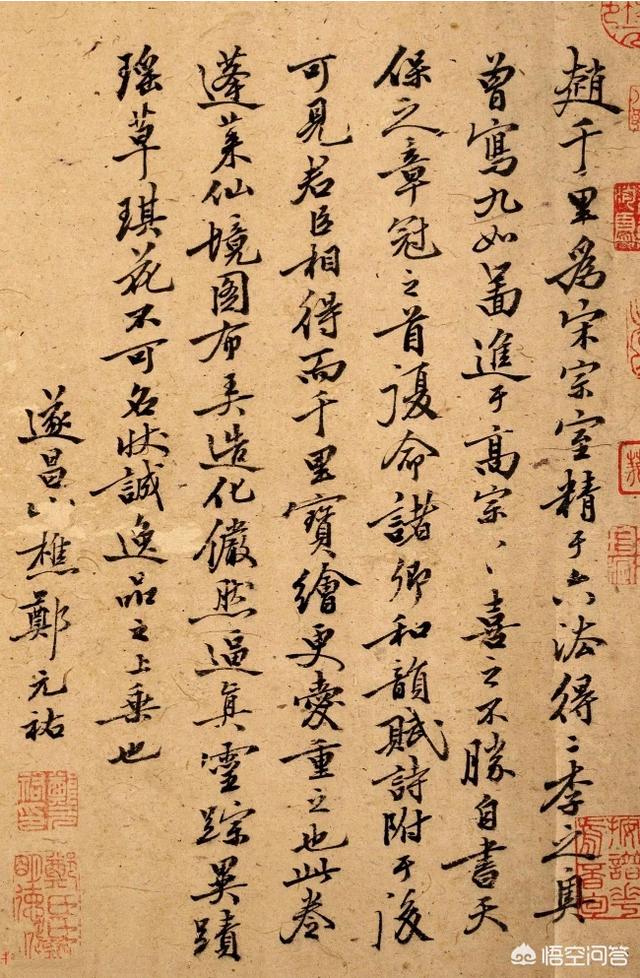 趙千里為宋宗室精于六法得二李之奥
曾寫九如啚進于高宗〻喜之不勝自書天
保之章冠之首復命諸卿和韻賦詩附于後
可見君臣相得而千里寶繪更愛重之也此卷
蓬萊仙境图布造化儼然逼真靈踪異蹟
瑶草琪花不可名状誠逸品之上乘也
遂昌山樵鄭元祐
悟空问答